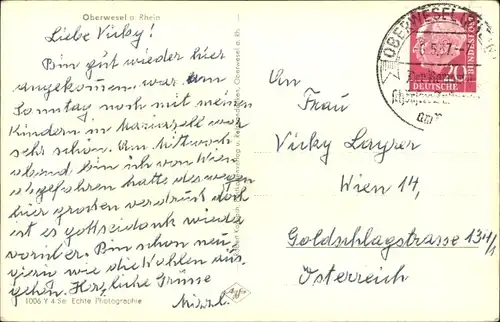 Oberwesel a. Rhein
Liebe Vicky!
Bin gut wieder hier
angekommen, war am
Sonntag noch mit meinen
Kindern in Mariazell war
sehr schön. Am Mittwoch
abend bin ich von Wien
abgefahren hatte deswegen
hier großen verdruß doch
ist es gottseidank wieder
vorüber. Bin schon neu
gierig wie die Wahlen aus
gehen. Herzliche Grüsse
Mizzl.
1006 Y 4 Se Echte Photographie
OBERWESEL
DEUTSCHE
BUNDESPOST
20
An
Frau
Vicky Layrer
Wien 14,
Goldschlagstrasse
Österreich